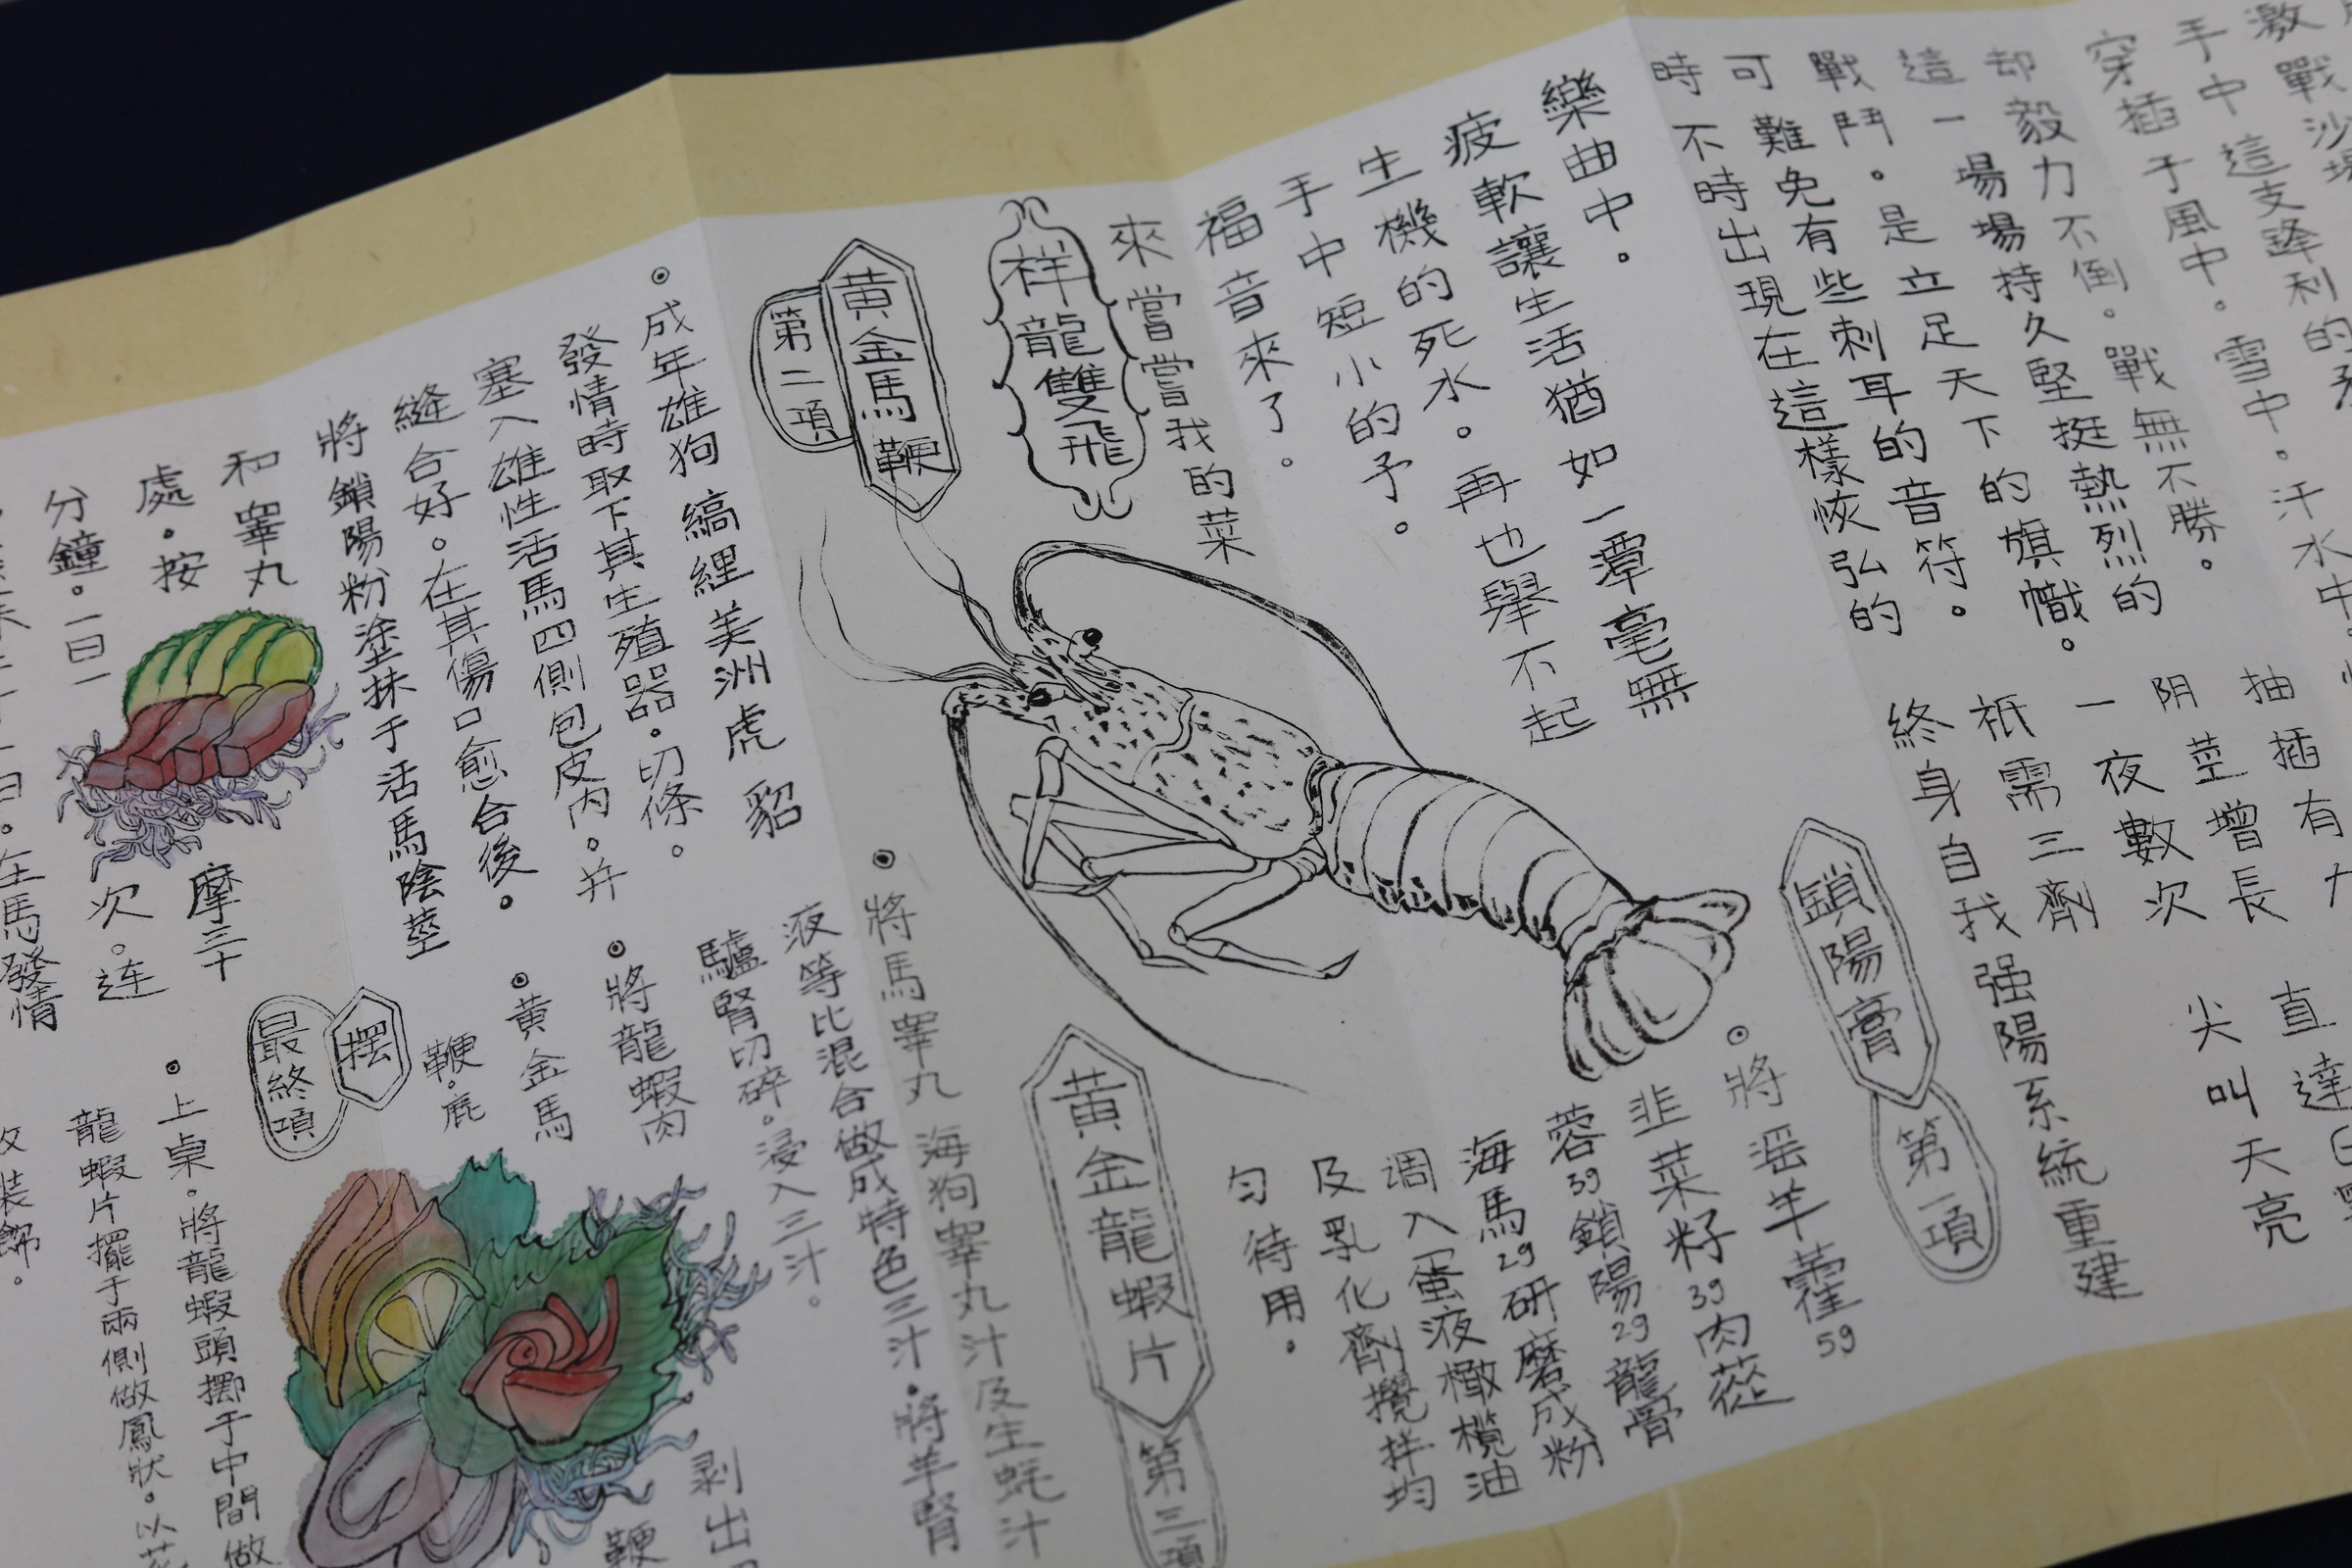 激戰沙場
手中這支鋒利的矛
穿插于風中。雪中。汗水中
却毅力不倒。戰無不勝。
這一場場持久堅挺熱烈的
戰鬥。是立足天下的旗幟。
可難免有些刺耳的音符。
時不時出現在這樣恢弘的
樂曲中。
疲軟讓生活猶如一潭毫無
生機的死水。再也舉不起
手中短小的予。
福音來了。
來嘗嘗我的菜
祥龍雙飛
直達
尖叫天亮
抽插有力
阴茎增長
一夜數次
祇需三劑
終身自我强陽系統重建
鎖陽膏
第一項
將淫羊藿5g
韭菜籽3g肉蓯
蓉3g鎖陽2g龍骨
海馬2g研磨成粉
调入蛋液橄欖油
及乳化劑攪拌均
匀待用。
黄金馬鞭
第二項
成年雄狗 縞貍 美洲虎 貂
發情時取下其生殖器。切條。
塞入雄性活馬四側包皮内。并
縫合好。在其傷口愈合後。
將鎖陽粉塗抹于活馬陰莖
和睾丸
處。按
摩三十
分鐘。一日一
次。连
在馬發情
黄金龍蝦片
第三項
將馬睾丸 海狗睾丸汁及生蚝汁
液等比混合做成特色三汁。將羊腎
驢腎切碎。浸入三汁。
將龍蝦肉
剥出
黄金馬
鞭。鹿
鞭
擺
最終項
上桌。將龍蝦頭擺于中間做
龍蝦片擺于兩側做鳳狀。以花
裝飾。